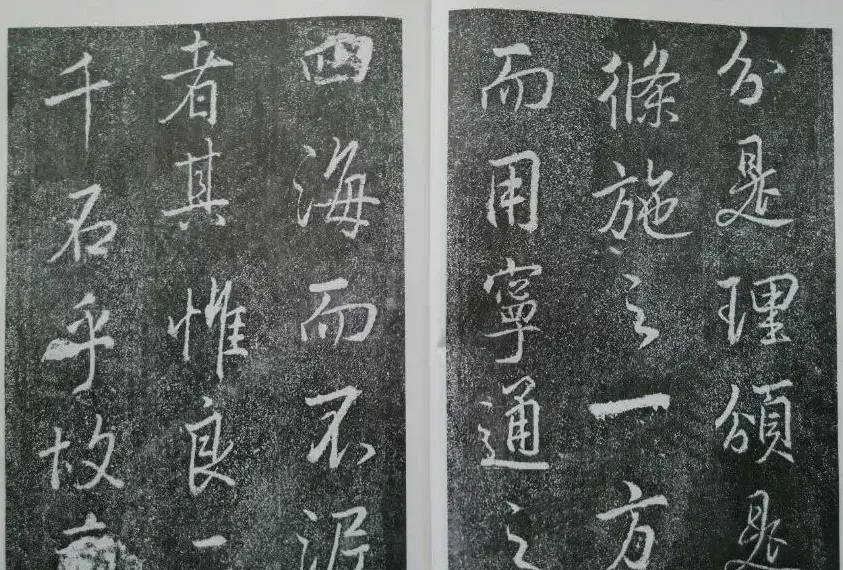 分是理頒是
條施之一方
而用寧通之
四海而不泥
者其惟良
千石乎故